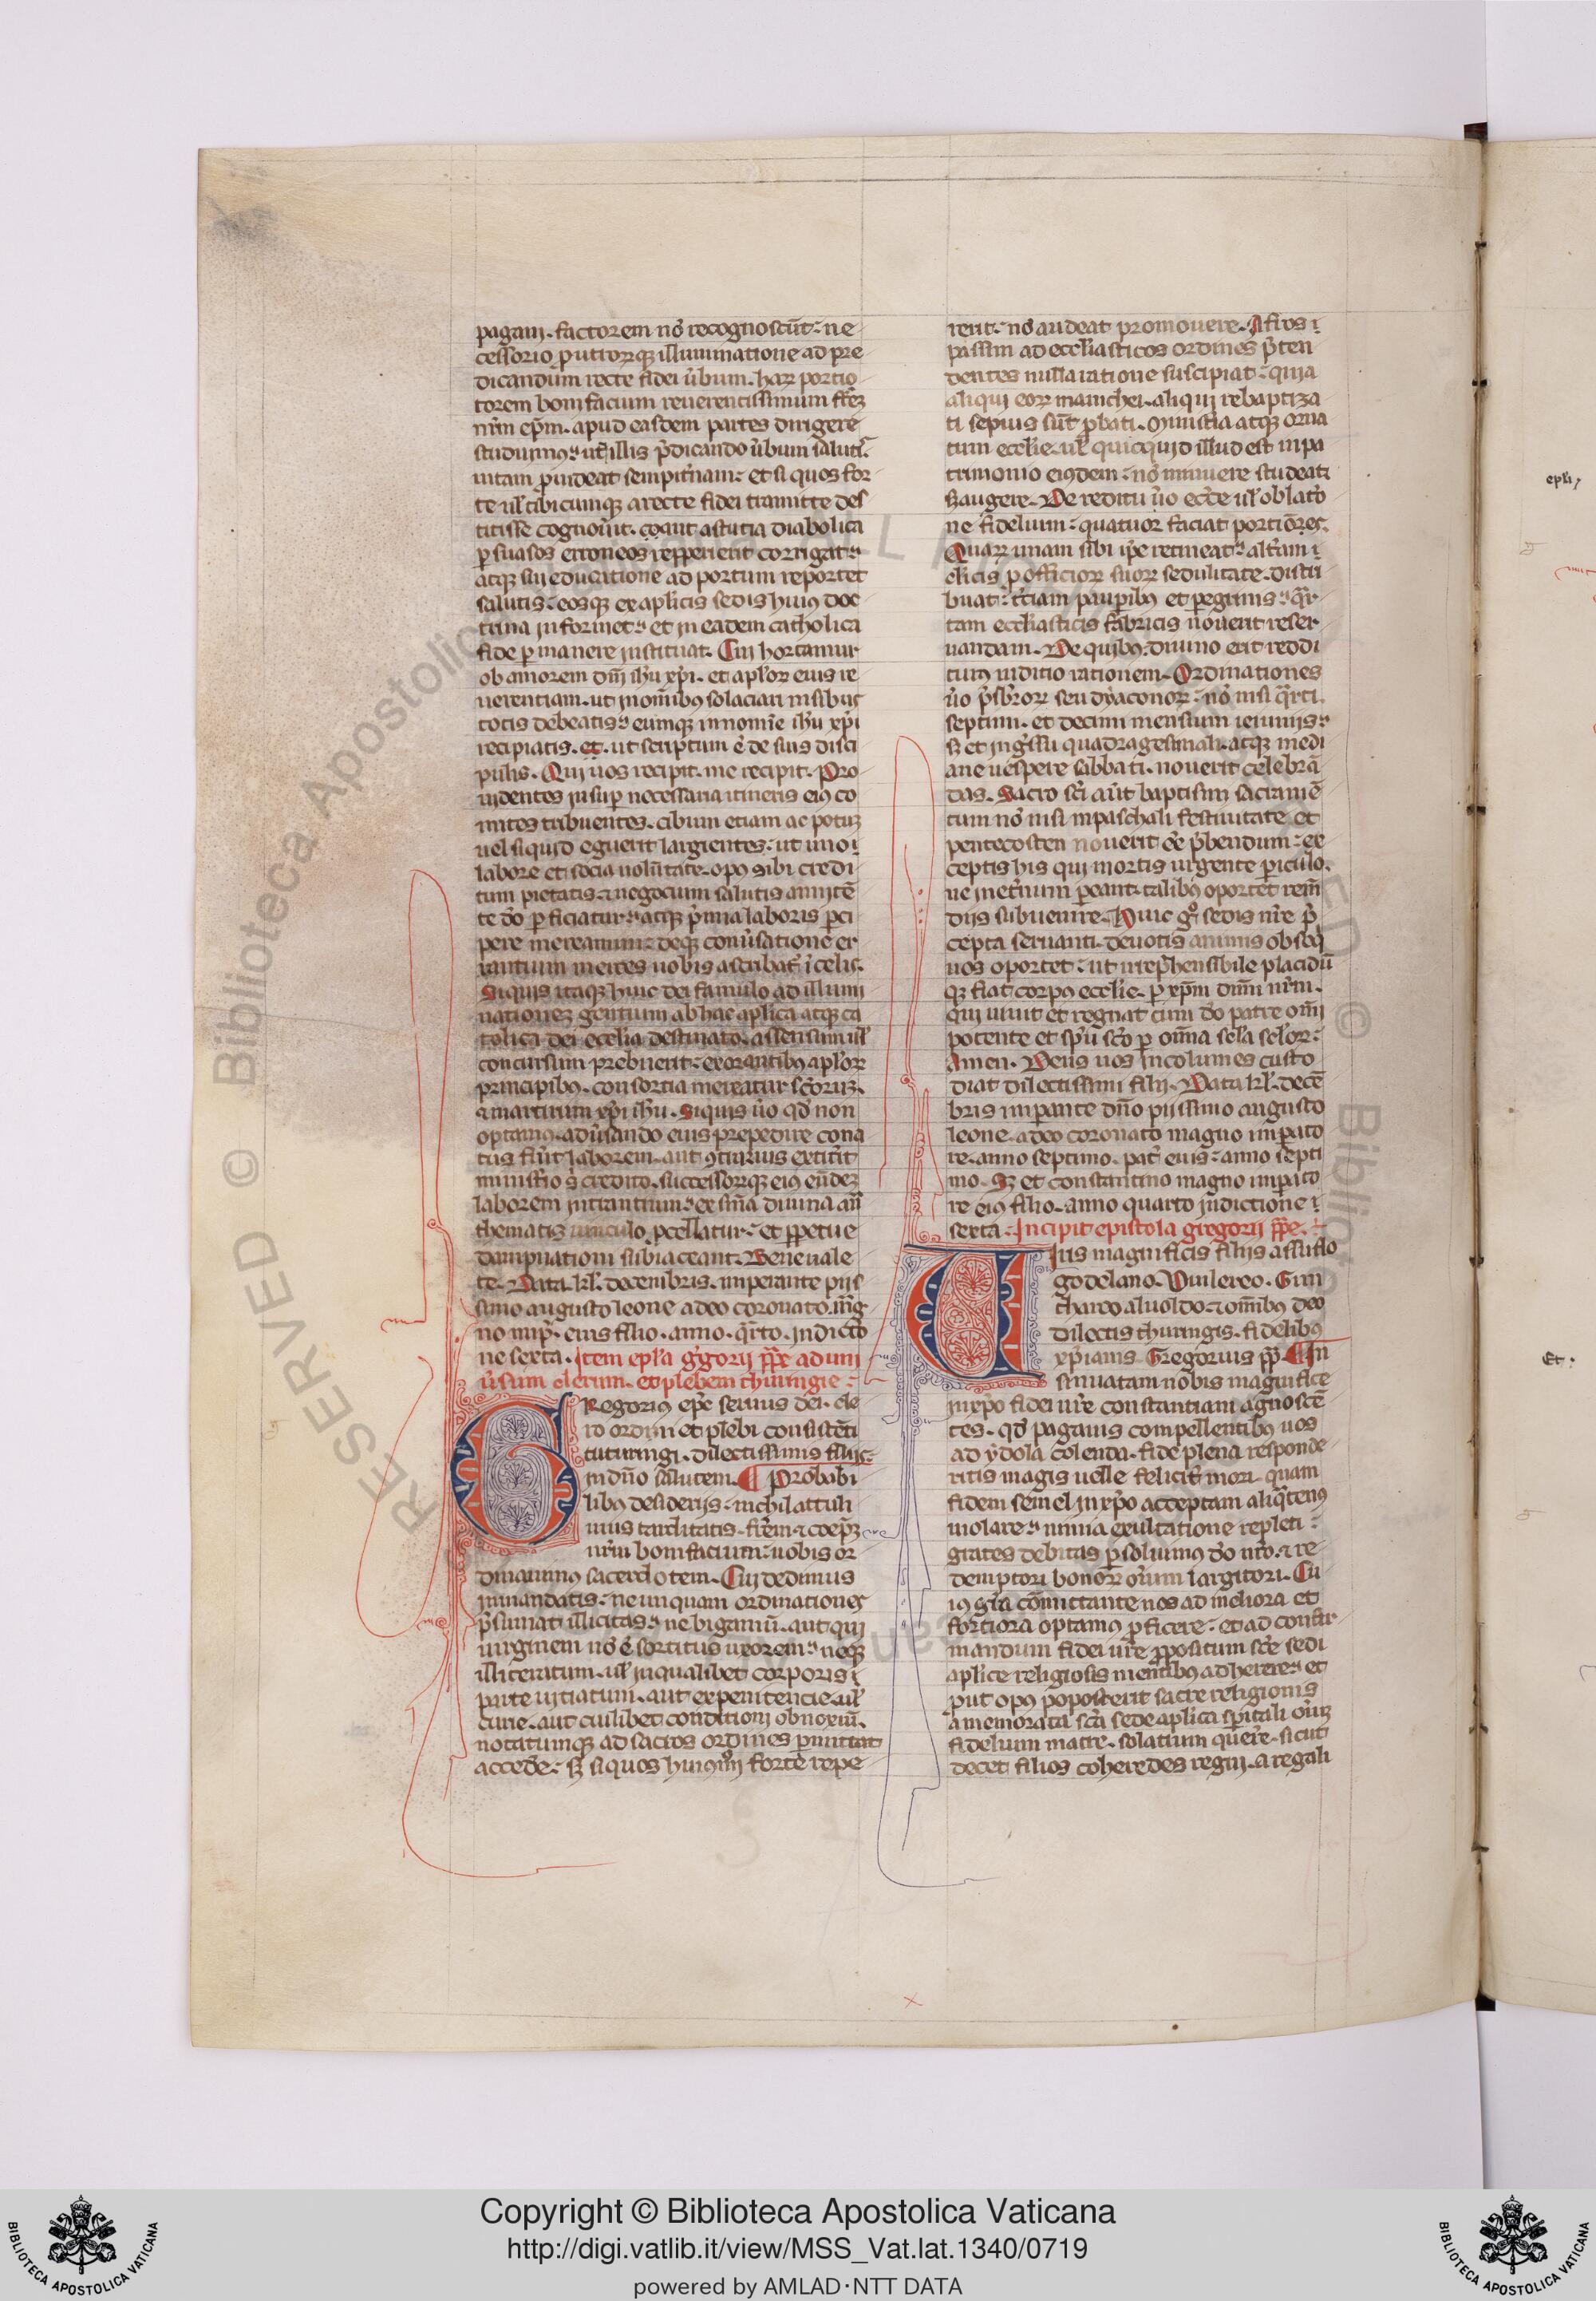 pagani. factorem nō recognoscūt ne
cessorio ꝓ utriorꝫqꝫ illuminatione ad pre
dicandum recte fidei ūbum. harꝫ portio
torem bonifacium reuerentissimum frēꝫ
nr̄m ep̄m. apud easdem partes dirigere
studuimꝰ ut illis p̄dicando ūbum salutꝭ
uitam ꝓuideat sempit̄nam. et si quos for
te ul̄ ubicumqꝫ a recte fidei tramite des
titisse cognoūit. aut astutia diabolica
ꝑsuasos erroneos repperierit corrigat
atqꝫ sui educatione ad portum reportet
salutis. eosqꝫ ex aplīcis sedis huiꝰ doc
trina informet et in eadem catholica
fide ꝑmanere instituat. Cui hortamur
ob amorem dn̄i ih̄u xp̄i. et apl̄orꝫ eius re
uerentiam. ut in om̄ibꝰ solaciari nisibus
totis debeatis eumqꝫ in nomīe ih̄u xp̄i
recipiatis. et. ut scriptum ē de suis disci
pulis. Qui uos recipit. me recipit. Pro
uidentes insuꝑ necessaria itineris eiꝰ co
mites tribuentes. cibum etiam ac potuꝫ
uel si quid eguerit largientes. ut uno
labore et socia uolūtate. opꝰ sibi credi
tum pietatis ⁊ negocium salutis annitē
te dō ꝑficiatur atqꝫ p̄mia laboris ꝑci
pere mereamini. deqꝫ conūsatione er
rantium merces uobis ascribat̄ ī celis.
Siquis itaqꝫ huic dei famulo ad illumi
nationeꝫ gentium ab hac aplīca atqꝫ ca
tolica dei ecclīa destinato. assensum ul̄
concursum prebuerit. exorantibꝰ apl̄orꝫ
principibꝰ. consortia mereatur sc̄oruꝫ.
⁊ martirum xp̄i ih̄u. Siquis ūo qd̄ non
optamꝰ. adūsando eius prepedire cona
tus fūit laborem. aut ꝯtrarius extit̄it
ministio s̄ credito. successorqꝫ eiꝰ eūdeꝫ
laborem intrantium ex sn̄ia diuina an̄
thematis uinculo ꝑcellatur. et ꝑpetue
dampnationi subiaceant. Bene uale
te. Data. kl̄. decembris. imperante piis
simo augusto leone a deo coronato. mag
no imp̄. eius filio. anno. q̄rto. indictō
ne sexta. Item epl̄a g̊gorii pp̄e ad uni
ūsum clerum. et plebem thuringie.
GRegoriꝰ ep̄c seruus dei. cle
ro ordini et plebi consistēti
tuturingi. dilectissimis filiis
in dn̄o salutem. ¶ Probabi
libꝰ desideriis. nichil attuli
mus tarditatis. fr̄em ⁊ coep̄ꝫ
nr̄m bonifacium. uobis or
dinauimꝰ sacerdotem. Cui dedimus
in mandatis. ne unquam ordinationes
p̄sumat illicitas. ne bigamū. aut qui
uirginem nō ē sortitus uxorem. neqꝫ
illiteratum. ul̄ in qualibet corporis
parte uitiatum. aut ex penitencie. ul̄
curie. aut cuilibet conditioni obnoxiū.
notatumqꝫ ad sacros ordines ꝑmittat
accedē. sꝫ si quos huiꝰmōi forte repe
rerit. nō audeat promouere. Afros
passim ad eccl̄iasticos ordines p̄ten
dentes nulla ratione suscipiat. quia
aliqui eorꝫ manichei. aliqui rebaptiza
ti sepius sūt ꝓbati. Ministia atqꝫ orna
tum ecclīe. ul̄ quicquid illud est in pa
trimonio eiꝰdem. nō minuere studeat
sꝫ augere. De reditu ūo ecc̄e ul̄ oblatō
ne fidelium. quatuor faciat portiōes.
Quarꝫ unam sibi ip̄e retineat. alt̄am
cl̄icis ꝓ officiorꝫ suorꝫ sedulitate distri
buat. t̄ciam pauꝑibꝰ et ꝑegrinis. q̄r
tam eccl̄iasticis fabricis nouerit reser
uandam. De quibꝰ. diuino erit reddi
turꝰ iuditio rationem. Ordinationes
ūo p̄sb̄rorꝫ seu dyaconorꝫ. nō nisi q̄rti
septimi. et decimi mensium ieiuniis
sꝫ et in g̊ssu quadragesimali. atqꝫ medi
ane uespere sabbati. nouerit celebrā
das. Sacro sc̄i aūt baptismi sacramē
tum nō nisi in paschali festiuitate et
pentecosten nouerit eē p̄bendum. ex
ceptis his qui mortis urgente ꝑiculo.
ne inet̄num ꝑeant. talibꝰ oportet rem̄
diis subuenire. Huic g̊ sedis nr̄e p̄
cepta seruanti. deuotis animis obseq̄
uos oportet. ut irrep̄hensibile placidū
qꝫ fiat corpꝰ ecclīe. ꝑ xp̄m dn̄m nr̄m.
qui uiuit et regnat cum dō patre om̄i
potente et sp̄u sc̄o ꝑ om̄ia sc̄la sc̄lorꝫ
amen. Deus uos incolumes custo
diat dilectissimi filii. Data kl̄. decē
bris imꝑante dn̄o piissimo augusto
leone. a deo coronato magno imꝑato
re. anno septimo. pat̄ eius. anno septi
mo. Sꝫ et constantino magno imꝑato
re eiꝰ filio. anno quarto indictione
sexta. Incipit epistola gregorii pp̄e.
Uiris magnificis filiis assulfo
godelano. Vuilereo. Gun
thareo aluoldo. ⁊ om̄ibꝰ deo
dilectis thuringis. fidelibꝰ
xp̄ianis. Gregorius pp̄. ¶ In
sinuatam nobis magnifice
in xp̄o fidei ur̄e constantiam agnoscē
tes. qd̄ paganis compellentibꝰ uos
ad ydola colenda. fide plena responde
ritis magis uelle felicit̄ mori. quam
fidem semel in xp̄o acceptam aliq̄tenꝰ
uiolare. nimia exultatione repleti
grates debitas ꝑsoluimꝰ dō nr̄o. ⁊ re
demptori bonorꝫ om̄ium largitori. Cu
iꝰ gr̄a cōmittante uos ad meliora et
fortiora optamꝰ ꝓficere. et ad confir
mandum fidei ur̄e ꝓpositum sc̄e sedi
aplīce religiosis mentibꝰ adherere. et
put opꝰ poposcerit sacre religionis
a memorata sc̄a sede aplīca sp̄itali om̄iꝫ
fidelium matre. solatium querēre. sicut
decet filios coheredes regni. a regali
epl̄i
Et.
RESERVED © Biblioteca Apostolica Vaticana ALL RIGHTS RESERVED © Biblioteca Apostolica Vaticana
Copyright © Biblioteca Apostolica Vaticana
http://digi.vatlib.it/view/MSS_Vat.lat.1340/0719
powered by AMLAD·NTT DATA
BIBLIOTECA APOSTOLICA VATICANA
BIBLIOTECA APOSTOLICA VATICANA